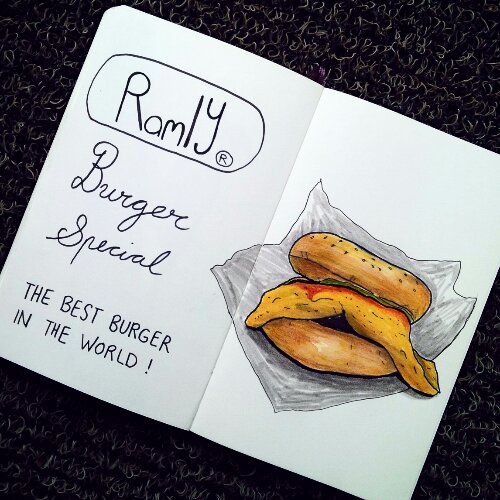 Ramly ®
Burger
Special
THE BEST BURGER
IN THE WORLD !